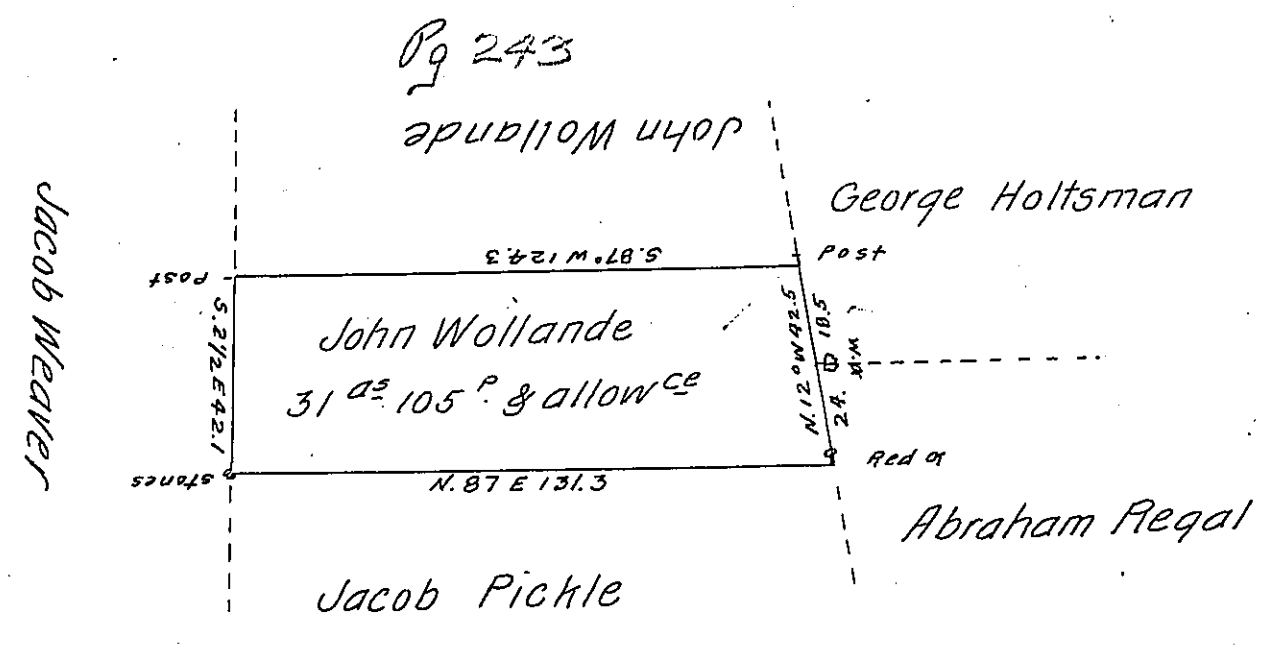 Pg 243
John Wollande
George Holtsman
Jacob Weaver
S. 87° W 124.3
Post
Post
John Wollande
31 as. 105 P. & allow ce
S. 2½ E 42.1
N. 12° W 42.5
18.5
24.
W.
Stones
N. 87 E 131.3
Red
Abraham Regal
Jacob Pickle